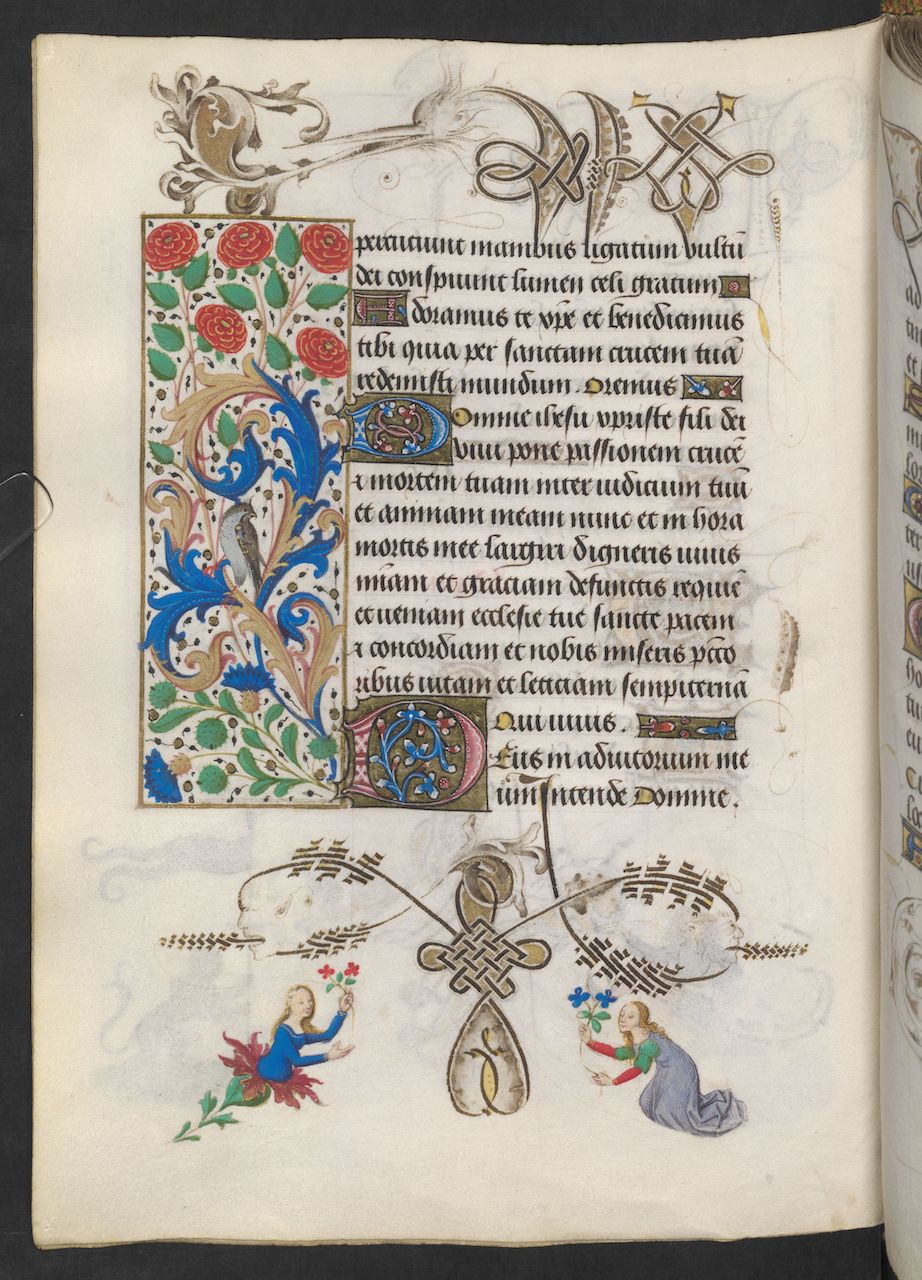 percutiunt manibus ligatum vultū
dei conspuunt lumen celi gratum
Adoramus te xp̄e et benedicimus
tibi quia per sanctam crucem tuā
redemisti mundum. Oremus
Domine ihesu xpriste fili dei
viui pone passionem crucē
⁊ mortem tuam inter iudicium tuū
et animam meam nunc et in hora
mortis mee largiri digneris uiuis
mīam et graciam defunctis requiē
et ueniam ecclesie tue sancte pacem
⁊ concordiam et nobis miseris pcc̄o
ribus uitam et leticiam sempiternā
Qui uiuis.
Deus in adiutorium me
um intende Domine.